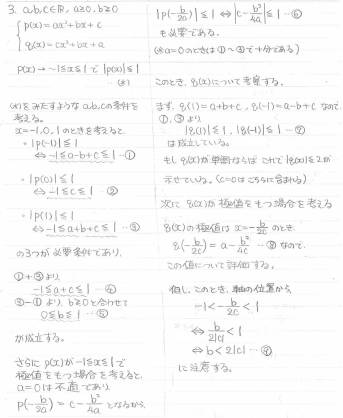 3. a,b,c∈R, a≧0, b≧0
p(x)=ax²+bx+c
q(x)=cx²+bx+a
p(x)→ -1≦x≦1 で |p(x)|≦1
…(*)
(*)をみたすような a,b,cの条件を
考える。
x=-1,0,1のときを考えると
・|p(-1)|≦1
⇔ -1≦a-b+c≦1 …①
・|p(0)|≦1
⇔ -1≦c≦1 …②
・|p(1)|≦1
⇔ -1≦a+b+c≦1 …③
の3つが必要条件であり、
①+③より
-1≦a+c≦1 …④
③-①より、b≧0と合わせて
0≦b≦1 …⑤
が成立する。
さらに p(x)が-1≦x≦1で
極値をもつ場合を考えると、
a=0は不適であり
p(-b/2a)=c-b²/4a となるから、
|p(-b/2a)|≦1 ⇔ |c-b²/4a|≦1 …⑥
も必要である。
(※a=0のときは①~③で十分である)
このとき、q(x)について考察する。
まず、q(1)=a+b+c, q(-1)=a-b+c なので
①,③より
|q(1)|≦1, |q(-1)|≦1 …⑦
は成立している。
もし q(x)が単調ならば これで|q(x)|≦2が
示せている。(c=0はこちらに含まれる)
次に q(x)が極値をもつ場合を考える
q(x)の極値は x=-b/2c のとき、
q(-b/2c)=a-b²/4c …⑧ なので、
この値について評価する。
但し、このとき、軸の位置から、
-1<-b/2c<1
⇔ b/2|c|<1
⇔ b<2|c| …⑨
に注意する。